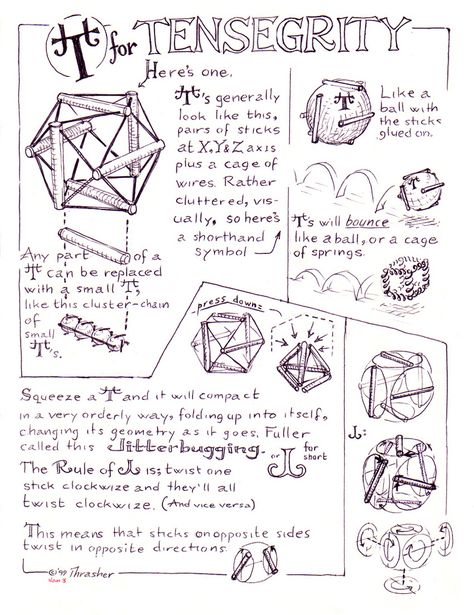 T for TENSEGRITY
Here's one.
T's generally
look like this,
pairs of sticks
at X,Y&Z axis
plus a cage of
wires. Rather
cluttered, vis-
ually, so here's
a shorthand
symbol
T
Like a
ball with
the sticks
glued on.
T's will bounce
like a ball, or a cage
of springs.
Any part of a
T can be replaced
with a small T,
like this cluster-chain
of
small
T's.
press down:
Squeeze a T and it will compact
in a very orderly way, folding up into itself,
changing its geometry as it goes. Fuller
called this Jitterbugging. or J for short
The Rule of J is; twist one
stick clockwize and they'll all
twist clockwize. (And vice versa)
This means that sticks on opposite sides
twist in opposite directions.
J:
©'99 Thrasher